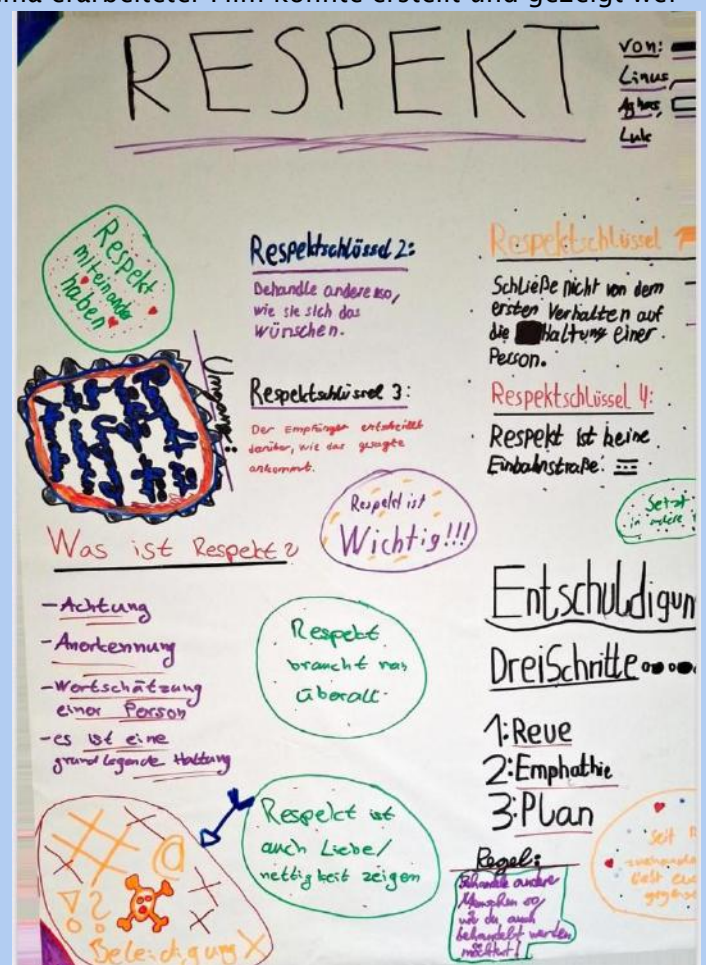 RESPEKT
von:
Linus
Luk
Respekt
miteinander
haben
Respektschlüssel 2:
Behandle andere so,
wie sie sich das
wünschen.
Respektschlüssel 3:
Der Empfänger entscheidet
darüber, wie das gesagte
ankommt.
Respektschlüssel
Schließe nicht von dem
ersten Verhalten auf
die Haltung einer
Person.
Respektschlüssel 4:
Respekt ist keine
Einbahnstraße!
Respekt ist
Wichtig!!!
Setzt
in andere
Was ist Respekt?
-Achtung
-Anerkennung
-Wertschätzung
einer Person
-es ist eine
grundlegende Haltung
Respekt
braucht man
überall
Respekt ist
auch Liebe/
nettigkeit zeigen
Beleidigung X
Entschuldigun
Drei Schritte
1: Reue
2: Emphathie
3: Plan
Regel:
Behandle andere
Menschen so,
wie du auch
behandelt werden
möchtest!